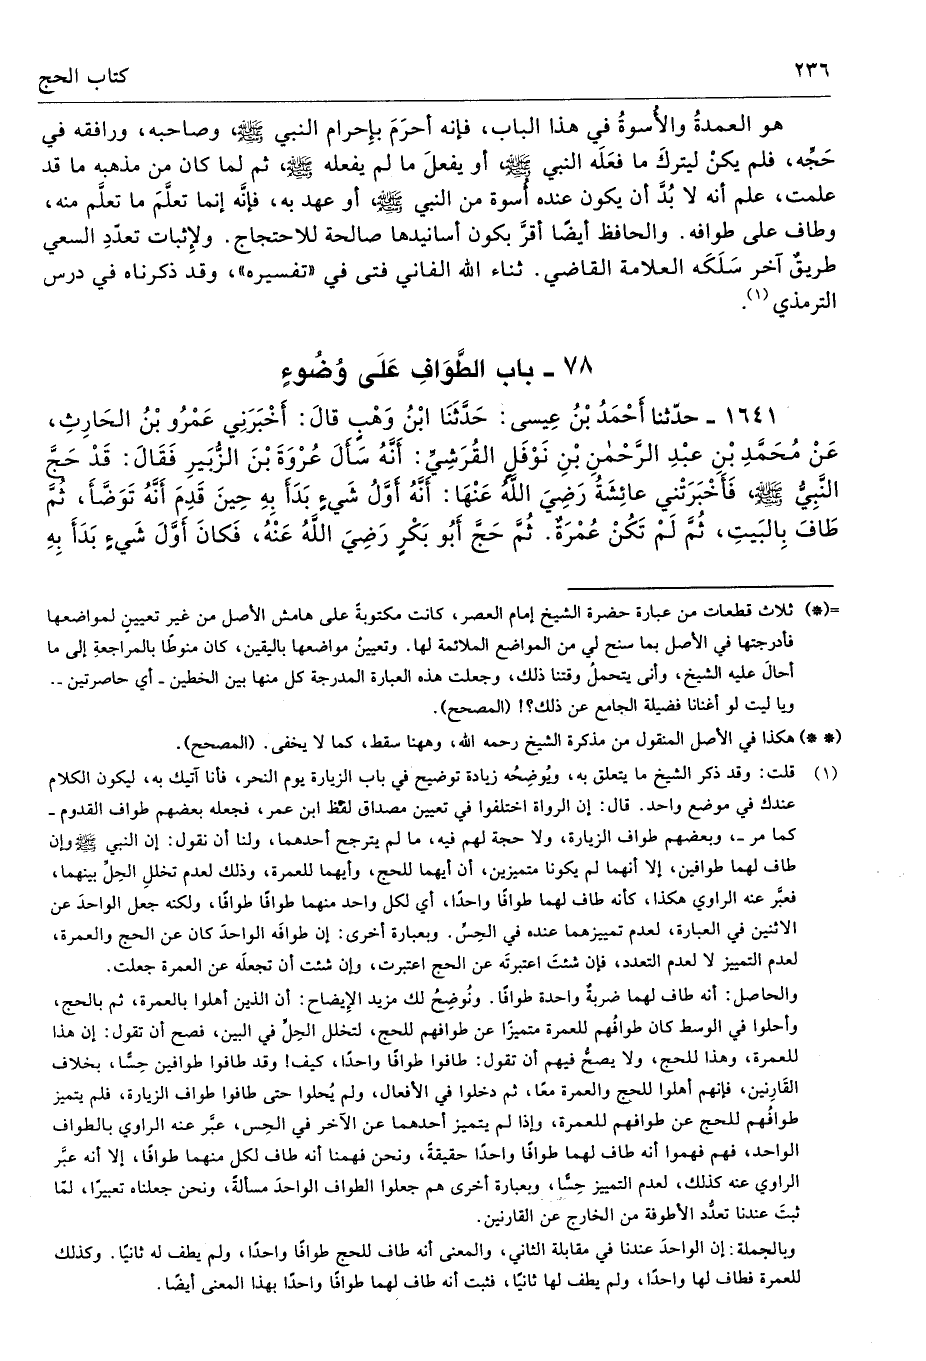 ٢٣٦
كتاب الحج
هو العمدةُ والأُسوةُ في هذا الباب، فإنه أحرَمَ بإحرام النبي ﷺ، وصاحبه، ورافقه في
حَجِّه، فلم يكنْ ليتركَ ما فعَلَه النبي ﷺ، أو يفعلَ ما لم يفعله ﷺ، ثم لما كان من مذهبه ما قد
علمت، علم أنه لا بُدَّ أن يكون عنده أُسوة من النبي ﷺ، أو عهد به، فإنَّه إنما تعلَّمَ ما تعلَّم منه،
وطاف على طوافه. والحافظ أيضًا أقرَّ بكون أسانيدها صالحة للاحتجاج. ولإثبات تعدّدِ السعي
طريقٌ آخر سَلَكَه العلامة القاضي. ثناء الله الفاني فتى في «تفسيره»، وقد ذكرناه في درس
الترمذي (١).
٧٨ ـ باب الطَّوَافِ عَلَى وُضُوءٍ
١٦٤١ ـ حدّثنا أَحْمَدُ بْنُ عِيسى: حَدَّثَنَا ابْنُ وَهْبٍ قالَ: أَخْبَرَنِي عَمْرُو بْنُ الحَارِثِ،
عَنْ مُحَمَّدِ بْنِ عبْدِ الرَّحْمٰنِ بْنِ نَوْفَلٍ القُرَشِيِّ: أَنَّهُ سَأَلَ عُرْوَةَ بْنَ الزُّبَيرِ فَقَالَ: قَدْ حَجَّ
النبِيُّ ﷺ، فَأَخْبَرَتْني عائِشَةُ رَضِيَ اللَّهُ عَنْهَا: أَنَّهُ أَوَّلُ شَيءٍ بَدَأَ بِهِ حِينَ قَدِمَ أَنَّهُ تَوَضَّأَ، ثُمَّ
طَافَ بِالبَيتِ، ثُمَّ لَمْ تَكُنْ عُمْرَةٌ. ثُمَّ حَجَّ أَبُو بَكْرٍ رَضِيَ اللَّهُ عَنْهُ، فَكانَ أَوَّلَ شَيءٍ بَدَأَ بِهِ
=(*) ثلاث قطعات من عبارة حضرة الشيخ إمام العصر، كانت مكتوبةً على هامش الأصل من غير تعيينٍ لمواضعها
فأدرجتها في الأصل بما سنح لي من المواضع الملائمة لها. وتعيينُ مواضعها باليقين، كان منوطًا بالمراجعةِ إلى ما
أحالَ عليه الشيخ، وأنى يتحملُ وقتنا ذلك، وجعلت هذه العبارة المدرجة كل منها بين الخطين ـ أي حاصرتين ـ.
ويا ليت لو أغنانا فضيلة الجامع عن ذلك؟! (المصحح).
(* *) هكذا في الأصل المنقول من مذكرة الشيخ رحمه الله، وههنا سقط، كما لا يخفى. (المصحح).
(١) قلت: وقد ذكر الشيخ ما يتعلق به، ويُوضِحُه زيادة توضيح في باب الزيارة يوم النحر، فأنا آتيك به، ليكون الكلام
عندك في موضع واحد. قال: إن الرواة اختلفوا في تعيين مصداق لفظ ابن عمر، فجعله بعضهم طواف القدوم ـ
كما مر ـ، وبعضهم طواف الزيارة، ولا حجة لهم فيه، ما لم يترجح أحدهما، ولنا أن نقول: إن النبي ﷺ وإن
طاف لهما طوافين، إلا أنهما لم يكونا متميزين، أن أيهما للحج، وأيهما للعمرة، وذلك لعدم تخلل الحِلِّ بينهما،
فعبَّر عنه الراوي هكذا، كأنه طاف لهما طوافًا واحدًا، أي لكل واحد منهما طوافًا طوافًا، ولكنه جعل الواحدَ عن
الاثنين في العبارة، لعدم تمييزهما عنده في الحِسِّ. وبعبارة أخرى: إن طوافَه الواحدَ كان عن الحج والعمرة،
لعدم التمييز لا لعدم التعدد، فإن شئتَ اعتبرتَه عن الحج اعتبرت، وإن شئت أن تجعلَه عن العمرة جعلت.
والحاصل: أنه طاف لهما ضربةٌ واحدة طوافًا. ونُوضِحُ لك مزيد الإيضاح: أن الذين أهلوا بالعمرة، ثم بالحج،
وأحلوا في الوسط كان طوافُهم للعمرة متميزًا عن طوافهم للحج، لتخلل الحِلِّ في البين، فصح أن تقول: إن هذا
للعمرة، وهذا للحج، ولا يصحُّ فيهم أن تقول: طافوا طوافًا واحدًا، كيف! وقد طافوا طوافين حِسًّا، بخلاف
القَارِنين، فإنهم أهلوا للحج والعمرة معًا، ثم دخلوا في الأفعال، ولم يُحلوا حتى طافوا طواف الزيارة، فلم يتميز
طوافُهم للحج عن طوافهم للعمرة، وإذا لم يتميز أحدهما عن الآخر في الحِس، عبَّر عنه الراوي بالطواف
الواحد، فهم فهموا أنه طاف لهما طوافًا واحدًا حقيقةً، ونحن فهمنا أنه طاف لكل منهما طوافًا، إلا أنه عبَّر
الراوي عنه كذلك، لعدم التمييز حِسًّا، وبعبارة أخرى هم جعلوا الطواف الواحدَ مسألةً، ونحن جعلناه تعبيرًا، لمّا
ثبتَ عندنا تعدُّد الأطوفة من الخارج عن القارنين.
وبالجملة: إن الواحدَ عندنا في مقابلة الثاني، والمعنى أنه طاف للحج طوافًا واحدًا، ولم يطف له ثانيًا. وكذلك
للعمرة فطاف لها واحدًا، ولم يطف لها ثانيًا، فثبت أنه طاف لهما طوافًا واحدًا بهذا المعنى أيضًا.